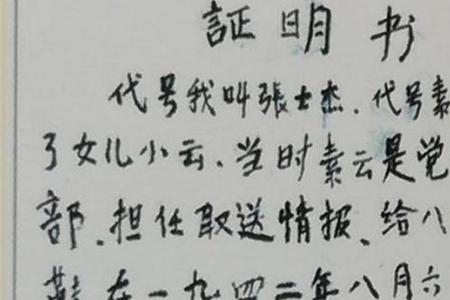 証明书
代号我叫張士杰、代号素
了女儿小云、当时素云是党
部、担任取送情报、给八
在一九四二年八月六